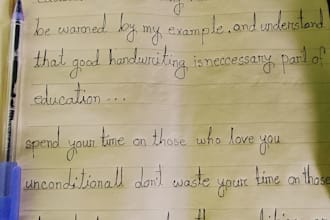 be warned by my example. and understand
that good handwriting is neccessary part of
education...
spend your time on those who love you
unconditionall don't waste your time on those